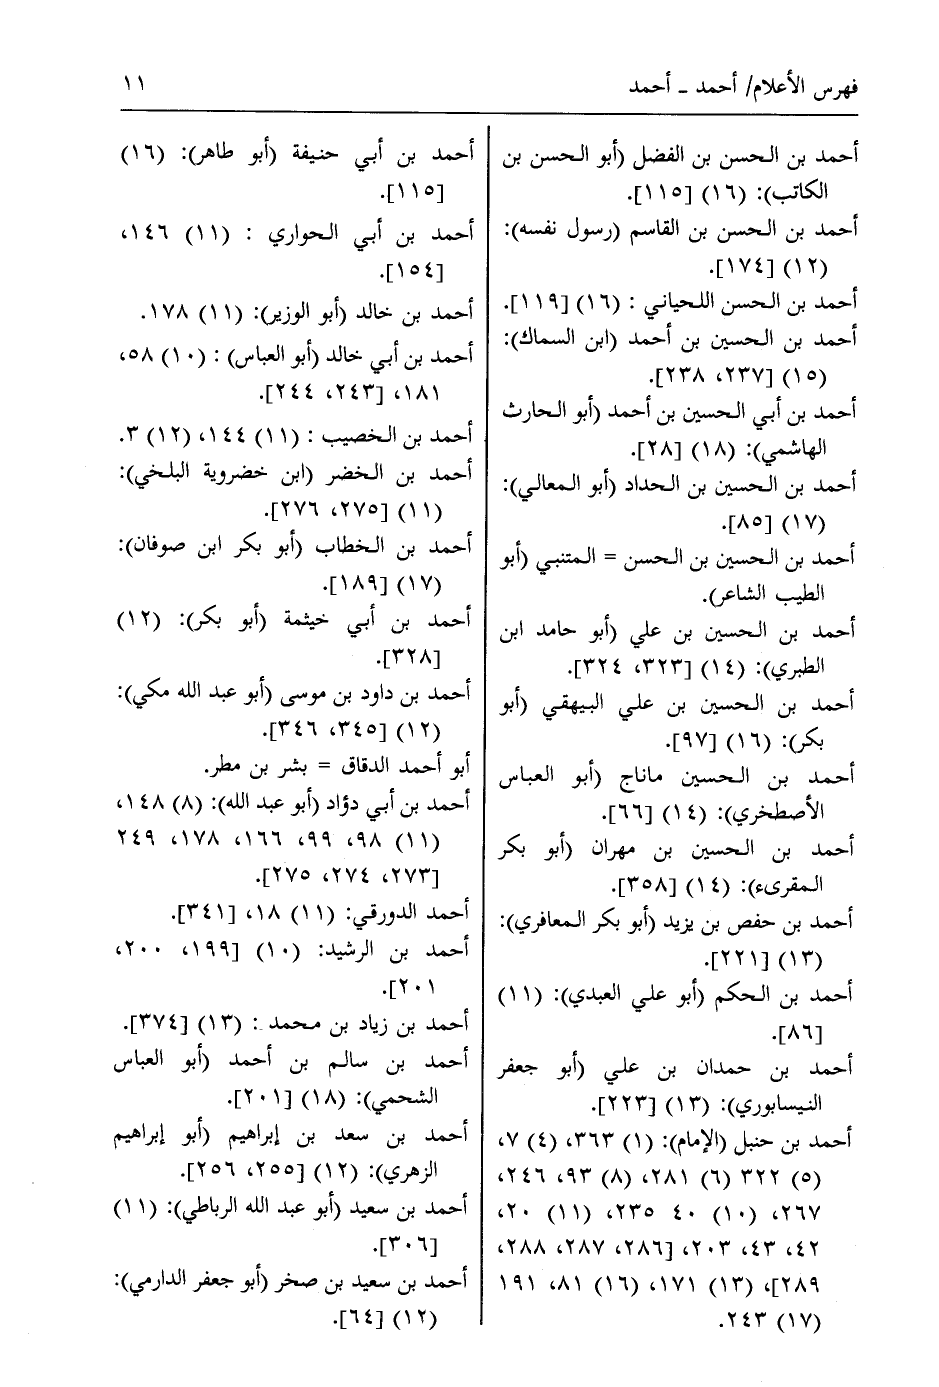 فهرس الأعلام/ أحمد ـ أحمد
١١
أحمد بن الحسن بن الفضل (أبو الحسن بن
الكاتب): (١٦) [١١٥].
أحمد بن الحسن بن القاسم (رسول نفسه):
(١٢) [١٧٤].
أحمد بن الحسن اللحياني : (١٦) [١١٩].
أحمد بن الحسين بن أحمد (ابن السماك):
(١٥) [٢٣٧، ٢٣٨].
أحمد بن أبي الحسين بن أحمد (أبو الحارث
الهاشمي): (١٨) [٢٨].
أحمد بن الحسين بن الحداد (أبو المعالي):
(١٧) [٨٥].
أحمد بن الحسين بن الحسن = المتنبي (أبو
الطيب الشاعر).
أحمد بن الحسين بن علي (أبو حامد ابن
الطبري): (١٤) [٣٢٣، ٣٢٤].
أحمد بن الحسين بن علي البيهقي (أبو
بكر): (١٦) [٩٧].
أحمد بن الحسين ماناج (أبو العباس
الأصطخري): (١٤) [٦٦].
أحمد بن الحسين بن مهران (أبو بكر
المقرىء): (١٤) [٣٥٨].
أحمد بن حفص بن يزيد (أبو بكر المعافري):
(١٣) [٢٢١].
أحمد بن الحكم (أبو علي العبدي): (١١)
[٨٦].
أحمد بن حمدان بن علي (أبو جعفر
النيسابوري): (١٣) [٢٢٣].
أحمد بن حنبل (الإمام): (١) ٣٦٣، (٤) ٧،
(٥) ٣٢٢ (٦) ٢٨١، (٨) ٩٣، ٢٤٦،
٢٦٧، (١٠) ٤٠ ٢٣٥، (١١) ٢٠،
٤٢، ٤٣، ٢٠٣، [٢٨٦، ٢٨٧، ٢٨٨،
٢٨٩]، (١٣) ١٧١، (١٦) ٨١، ١٩١
(١٧) ٢٤٣.
أحمد بن أبي حنيفة (أبو طاهر): (١٦)
[١١٥].
أحمد بن أبي الحواري : (١١) ١٤٦،
[١٥٤].
أحمد بن خالد (أبو الوزير): (١١) ١٧٨.
أحمد بن أبي خالد (أبو العباس) : (١٠) ٥٨،
١٨١، [٢٤٣، ٢٤٤].
أحمد بن الخصيب : (١١) ١٤٤، (١٢) ٣.
أحمد بن الخضر (ابن خضروية البلخي):
(١١) [٢٧٥، ٢٧٦].
أحمد بن الخطاب (أبو بكر ابن صوفان):
(١٧) [١٨٩].
أحمد بن أبي خيثمة (أبو بكر): (١٢)
[٣٢٨].
أحمد بن داود بن موسى (أبو عبد الله مكي):
(١٢) [٣٤٥، ٣٤٦].
أبو أحمد الدقاق = بشر بن مطر.
أحمد بن أبي دؤاد (أبو عبد الله): (٨) ١٤٨،
(١١) ٩٨، ٩٩، ١٦٦، ١٧٨، ٢٤٩
[٢٧٣، ٢٧٤، ٢٧٥].
أحمد الدورقي: (١١) ١٨، [٣٤١].
أحمد بن الرشيد: (١٠) [١٩٩، ٢٠٠،
٢٠١].
أحمد بن زياد بن محمد : (١٣) [٣٧٤].
أحمد بن سالم بن أحمد (أبو العباس
الشحمي): (١٨) [٢٠١].
أحمد بن سعد بن إبراهيم (أبو إبراهيم
الزهري): (١٢) [٢٥٥، ٢٥٦].
أحمد بن سعيد (أبو عبد الله الرباطي): (١١)
[٣٠٦].
أحمد بن سعيد بن صخر (أبو جعفر الدارمي):
(١٢) [٦٤].